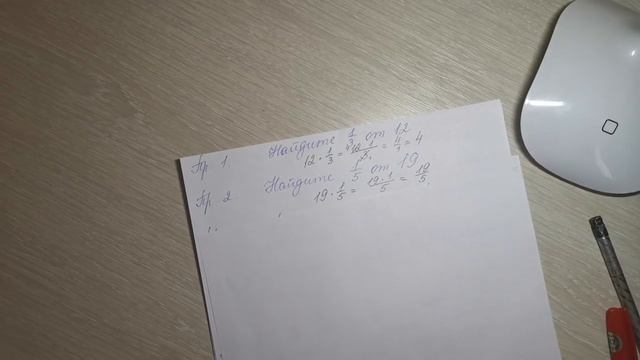 Пр. 1 Найдите 1/3 от 12
12 · 1/3 = 12·1/3 = 4/1 = 4
Пр. 2 Найдите 1/5 от 19
19 · 1/5 = 19·1/5 = 19/5